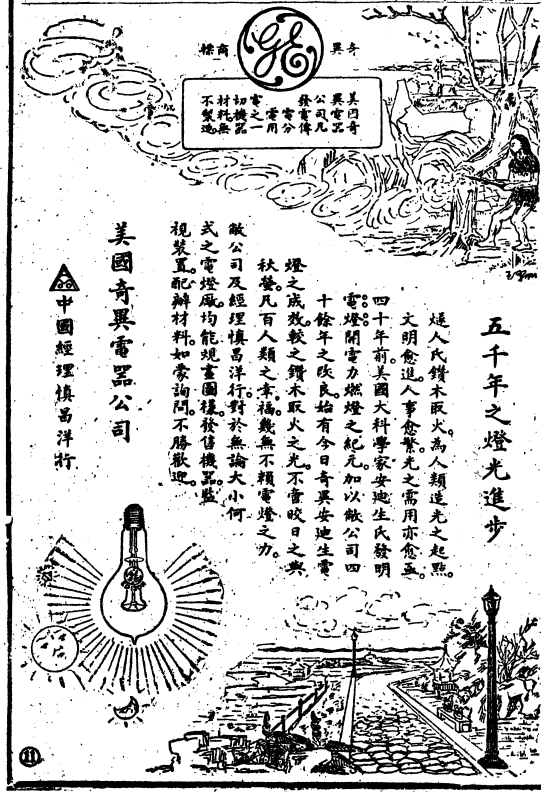 奇異 商標
GE
美國奇
異電器
公司凡
發電傳
電分
電用
電之一
切機器
材料無
不製造
五千年之燈光進步
燧人氏鑽木取火。為人類造光之起點。
文明愈進。人事愈繁。光之需用亦愈亟。
四十年前。美國大科學家安迪生氏發明
電燈。開電力燃燈之紀元。加以敝公司四
十餘年之改良。始有今日奇異安迪生電
燈之成效。較之鑽木取火之光。不啻皎日之與
秋螢。凡百人類之幸福。幾無不賴電燈之力。
敝公司及經理慎昌洋行。對於無論大小何
式之電燈廠。均能規畫圖樣。發售機器。監
視裝置。配辦材料。如蒙詢問。不勝歡迎。
美國奇異電器公司
中國經理慎昌洋行
11